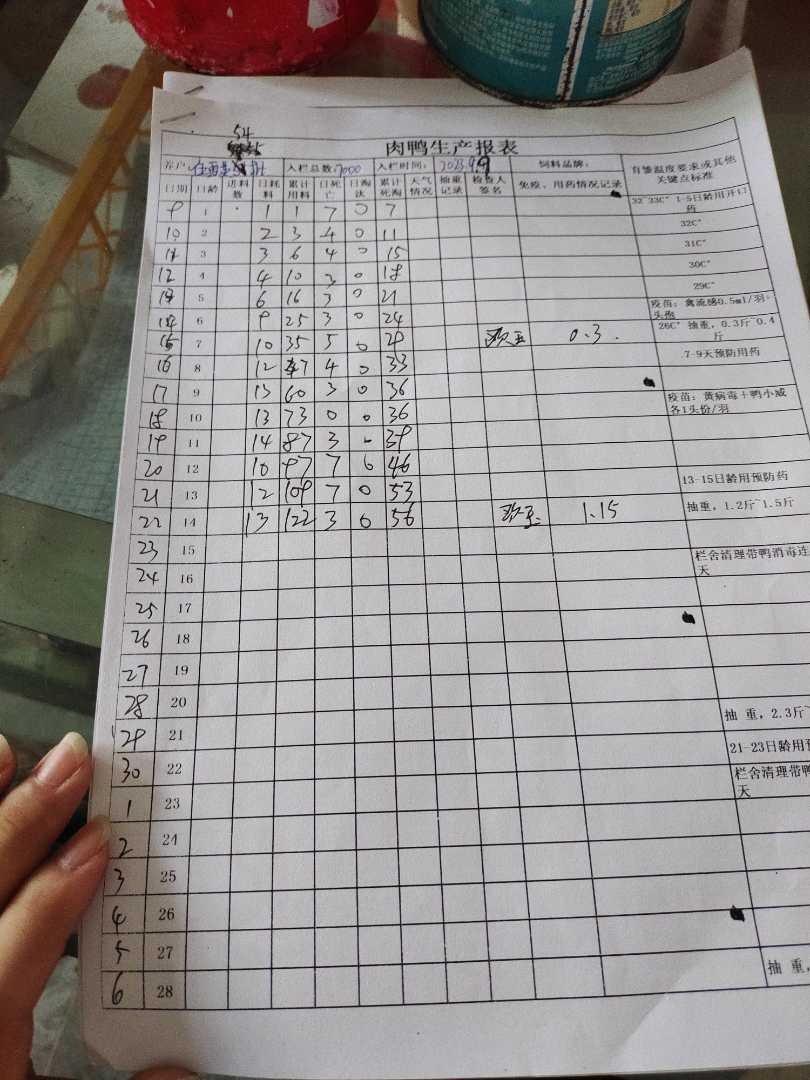 54
肉鸭生产报表
客户: 入栏总数:7000 入栏时间: 2023.9.9 饲料品牌: 育雏温度要求或其他关键点标准
日期 日龄 进料数 日耗料 累计用料 日死亡 日淘汰 累计死淘 天气情况 抽重记录 检查人签名 免疫、用药情况记录
9 1 1 1 7 0 7 32~33C° 1-5日龄用开口药
10 2 2 3 4 0 11 32C°
11 3 3 6 4 0 15 31C°
12 4 4 10 3 0 18 30C°
13 5 6 16 3 0 21 29C°
14 6 9 25 3 0 24 疫苗:禽流感0.5ml/羽
15 7 10 35 5 0 29 0.3 26C° 抽重,0.3斤~0.4斤
16 8 12 47 4 0 33 7-9天预防用药
17 9 13 60 3 0 36 疫苗:黄病毒+鸭小威各1头份/羽
18 10 13 73 0 0 36
19 11 14 87 3 0 39
20 12 10 97 7 0 46
21 13 12 109 7 0 53 13-15日龄用预防药
22 14 13 122 3 0 56 1.15 抽重,1.2斤~1.5斤
23 15 栏舍清理带鸭消毒连天
24 16
25 17
26 18
27 19
28 20
29 21 抽 重,2.3斤~
30 22 21-23日龄用预
1 23 栏舍清理带鸭天
2 24
3 25
4 26
5 27
6 28 抽 重,